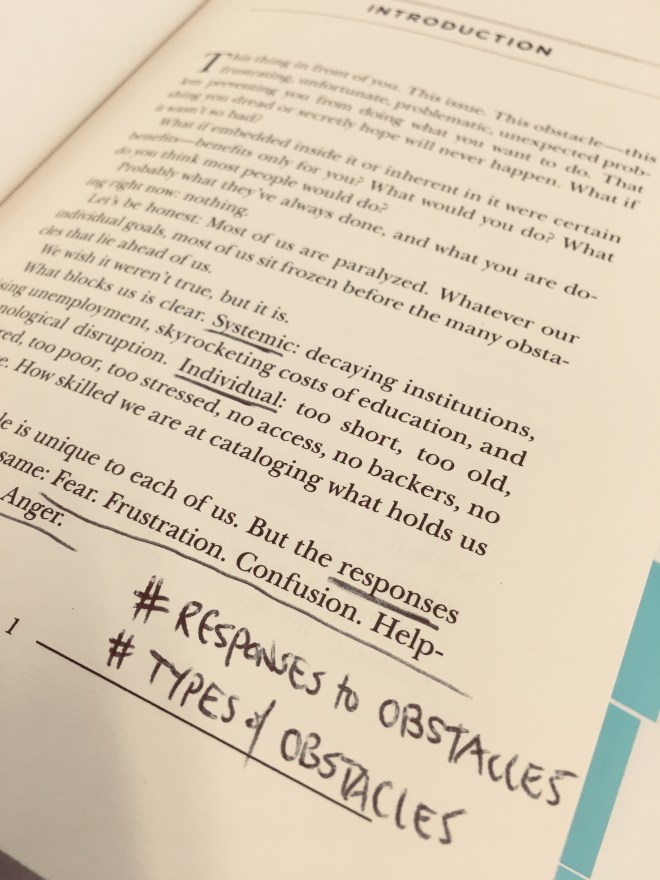 INTRODUCTION
This thing in front of you. This issue. This obstacle—this
frustrating, unfortunate, problematic, unexpected prob-
lem preventing you from doing what you want to do. That
thing you dread or secretly hope will never happen. What if
it wasn't so bad?
What if embedded inside it or inherent in it were certain
benefits—benefits only for you? What would you do? What
do you think most people would do?
Probably what they've always done, and what you are do-
ing right now: nothing.
Let's be honest: Most of us are paralyzed. Whatever our
individual goals, most of us sit frozen before the many obsta-
cles that lie ahead of us.
We wish it weren't true, but it is.
What blocks us is clear. Systemic: decaying institutions,
sing unemployment, skyrocketing costs of education, and
nological disruption. Individual: too short, too old,
red, too poor, too stressed, no access, no backers, no
e. How skilled we are at cataloging what holds us
le is unique to each of us. But the responses
same: Fear. Frustration. Confusion. Help-
Anger.
# RESPONSES to OBSTACLES
# TYPES of OBSTACLES
1